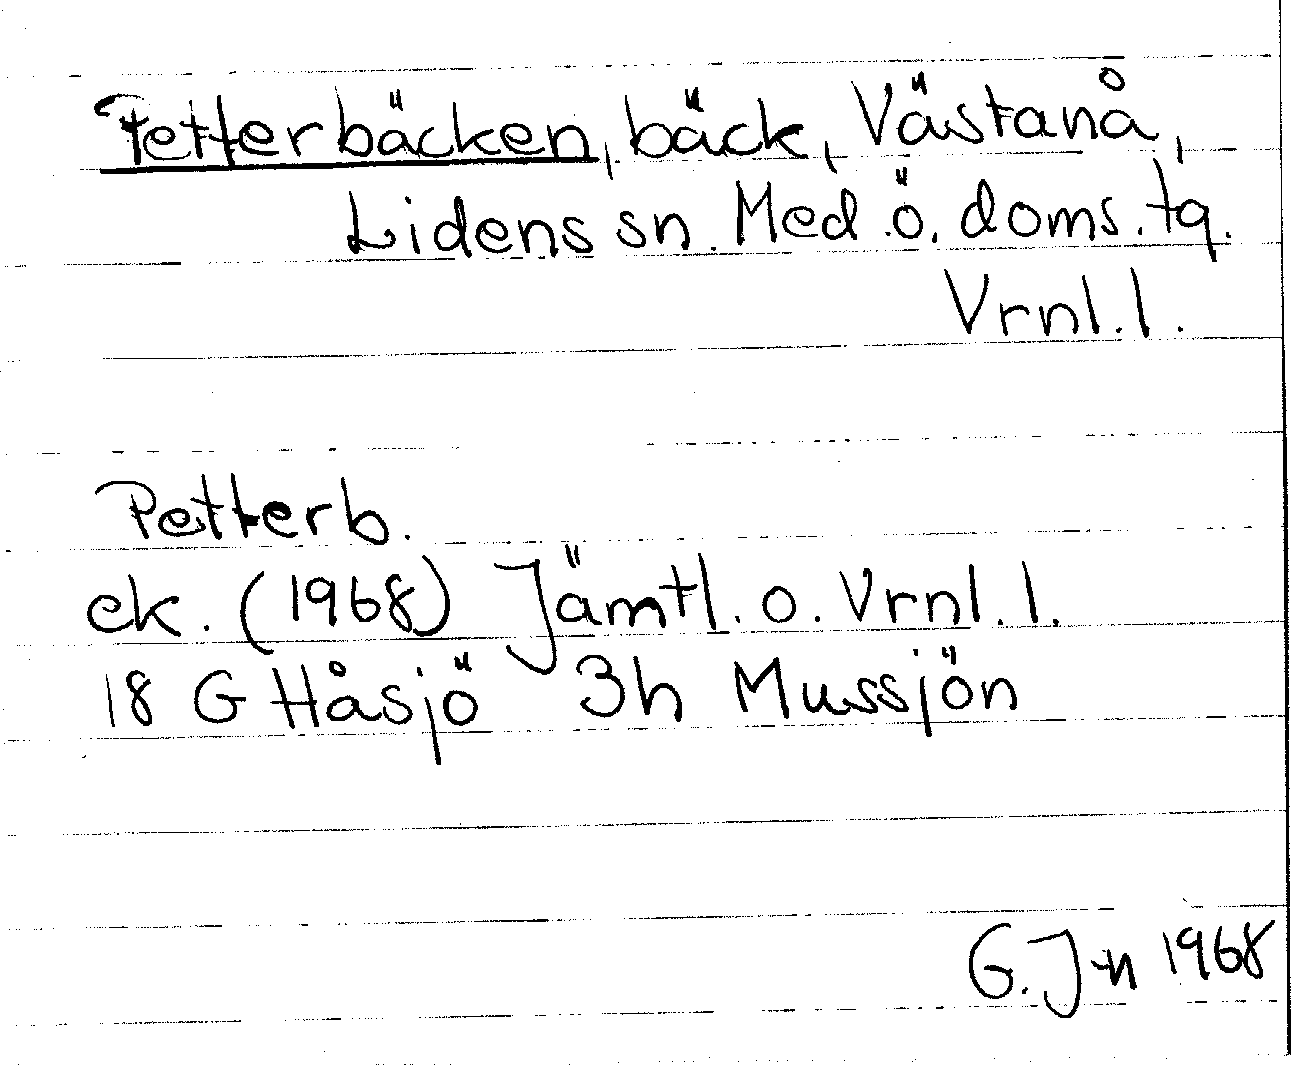 Petterbäcken, bäck, Västanå,
Lidens sn. Med.ö. doms.tg.
Vrnl.l.
Petterb.
ek. (1968) Jämtl. o. Vrnl. l.
18 G Håsjö 3h Mussjön
G. J-n 1968